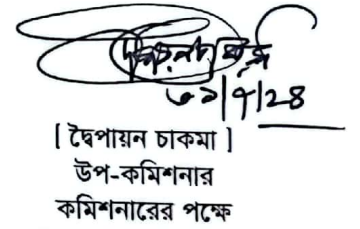 ৩১/৭/২৪
[ দ্বৈপায়ন চাকমা ]
উপ-কমিশনার
কমিশনারের পক্ষে